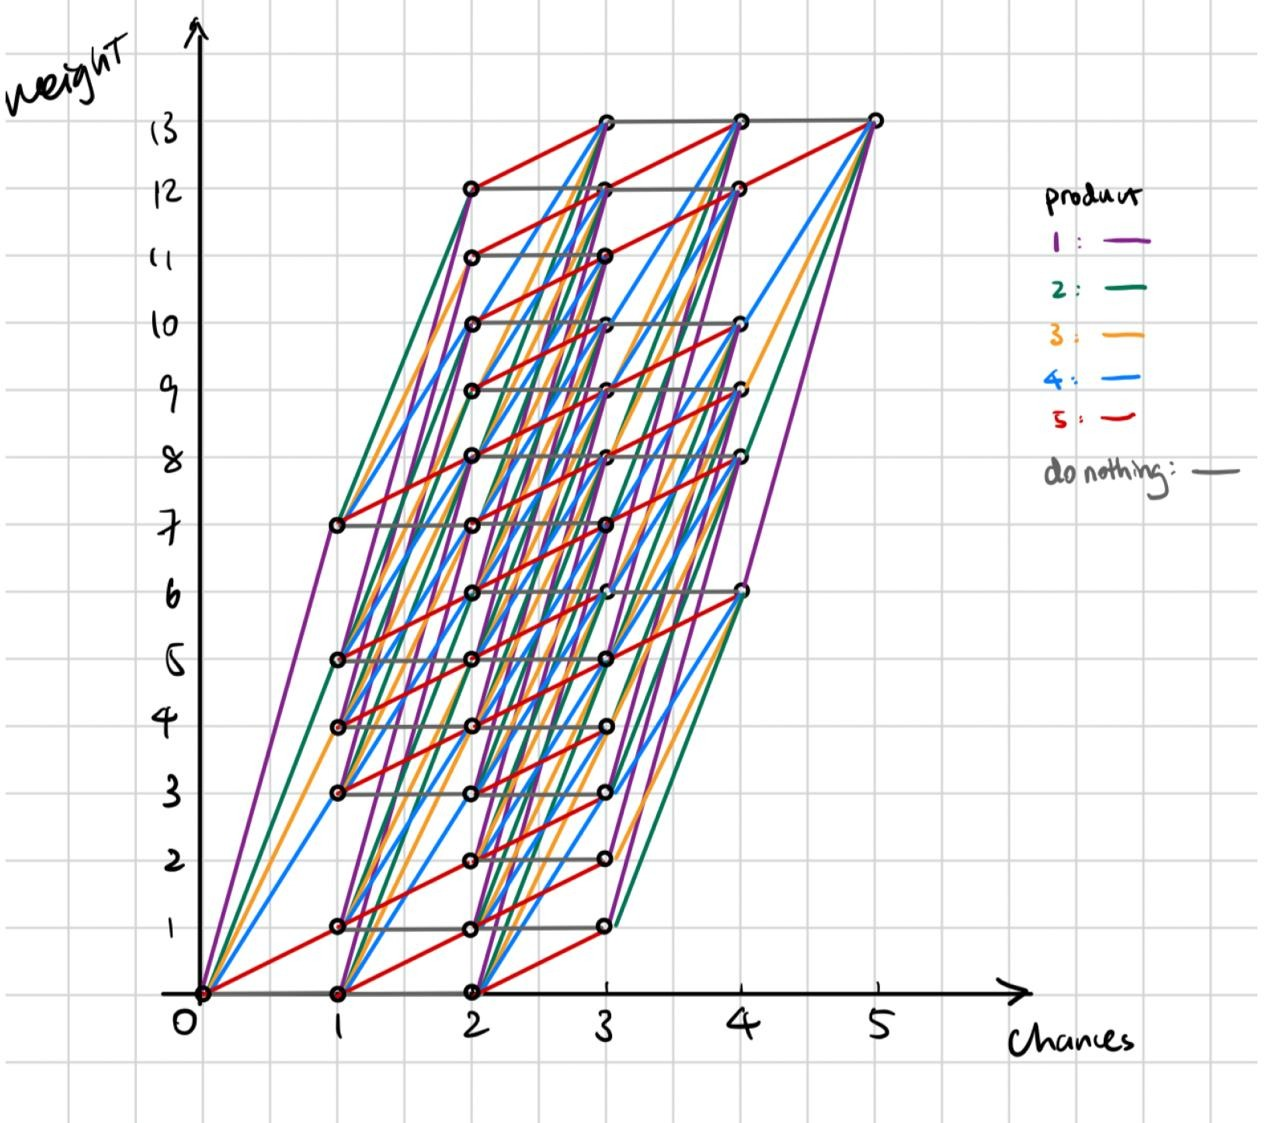 weight
13
12
11
10
9
8
7
6
5
4
3
2
1
0 1 2 3 4 5
Chances
product
1:
2:
3:
4:
5:
do nothing: